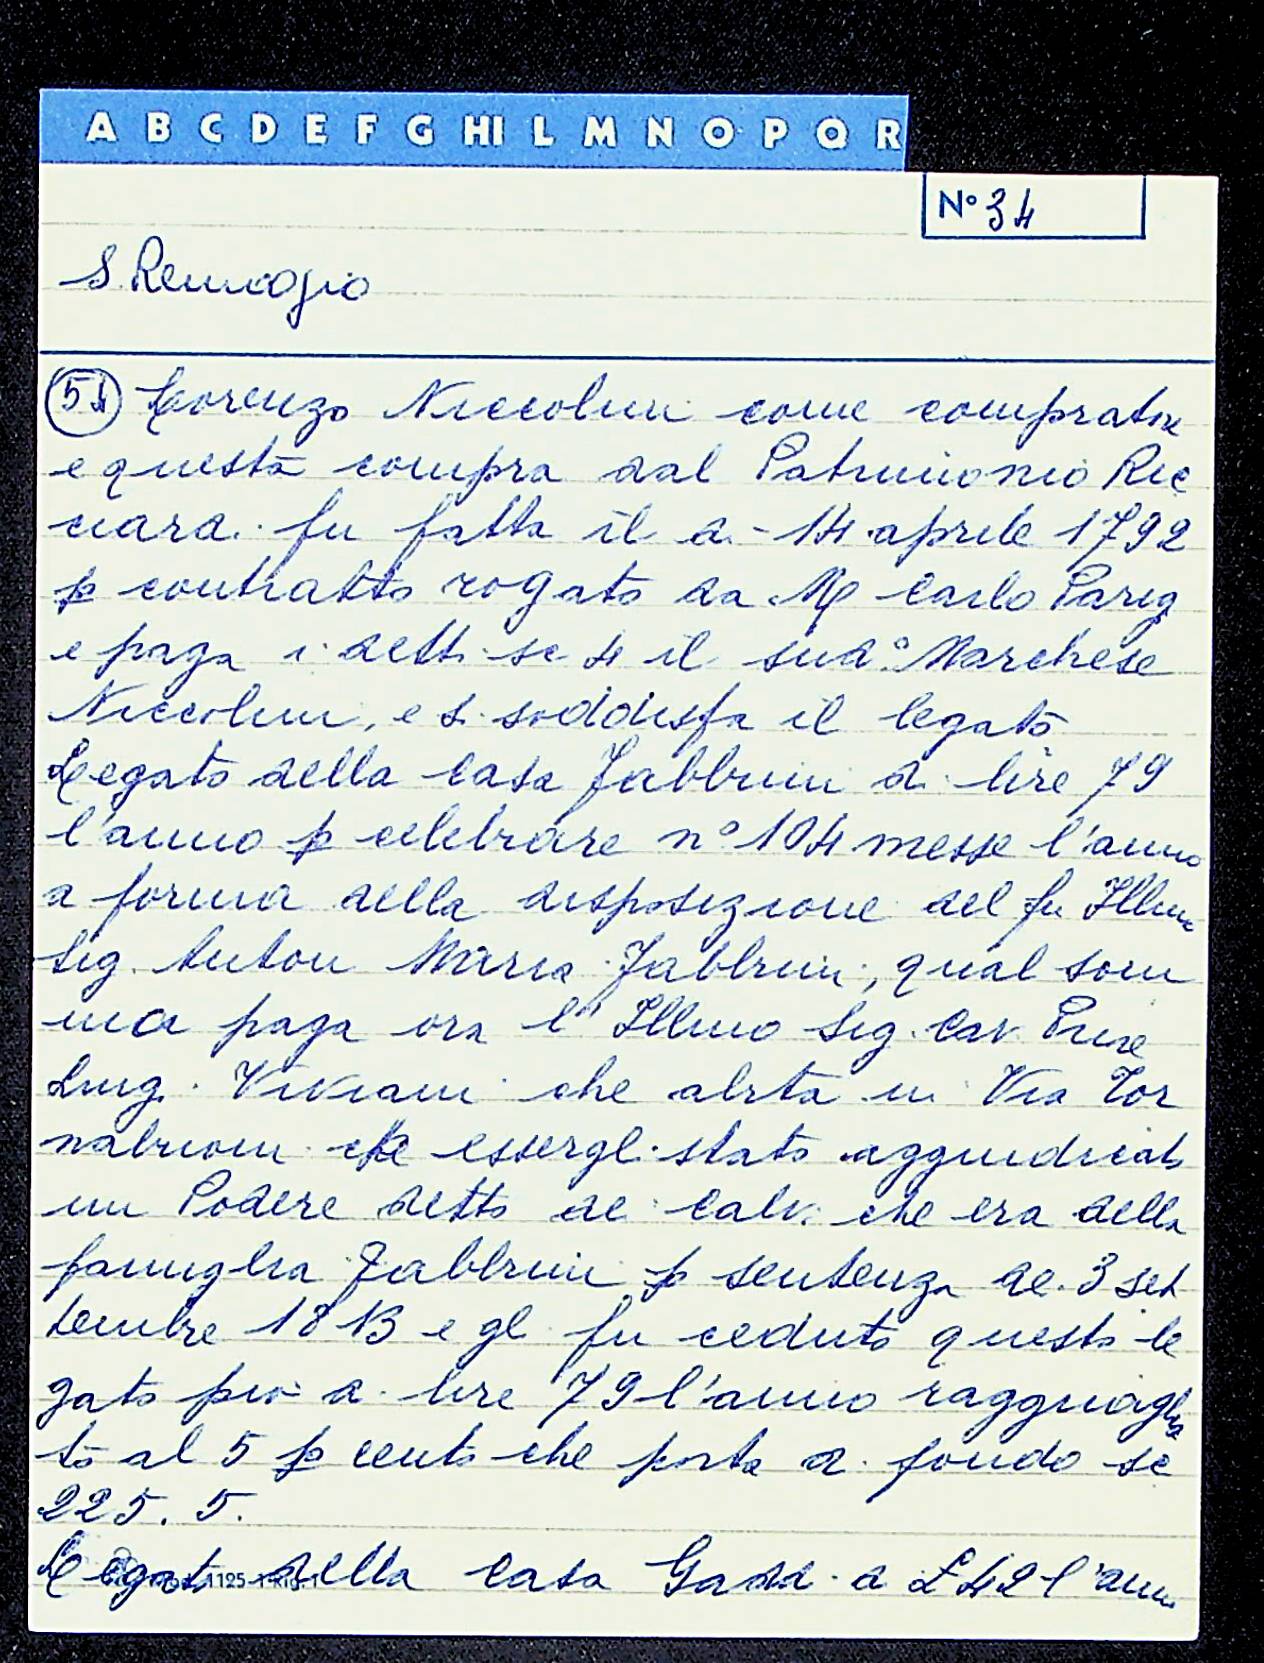 A B C D E F G HI L M N O P Q R
N° 34
S. Remigio
51 Lorenzo Niccolini come compratore
e questa compra dal Patrimonio Ric
ciardi fu fatta il dì 14 aprile 1792
p contratto rogato da M Carlo
e paga i detti sc 4 il sud° Marchese
Niccolini, e si soddisfa il legato
Legato della Casa Fabbrini di lire 79
l'anno p celebrare n° 104 messe l'anno
a forma della disposizione del fu Illmo
Sig. Anton Maria Fabbrini, qual som
ma paga ora l' Illmo Sig. Cav. Prire
Luig. Viviani che abita in Via Tor
nabuoni che essergli stato aggiudicato
un Podere detto de Calvi che era della
famiglia Fabbrini p sentenza de 3 set
tembre 1813 e gli fu ceduto questo le
gato pio di lire 79 l'anno ragguaglia
to al 5 p cento che porta di fondo sc
225. 5.
Legato della Casa Gaddi di £ 42 l'anno